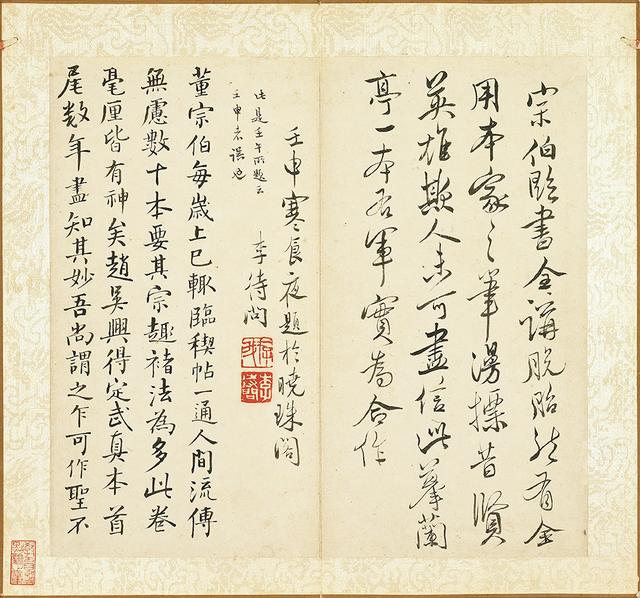 宗伯臨書全講脫胎然有全
用本家之筆漫摽昔賢
英雄欺人未可盡信此摹蘭
亭一本右軍實為合作
壬申寒食夜題於曉珠閣
李待問
此是壬午所題云
壬申者誤也
董宗伯每歲上巳輒臨稧帖一通人間流傳
無慮數十本要其宗趣褚法為多此卷
毫厘皆有神矣趙吳興得定武真本首
尾数年盡知其妙吾尚謂之乍可作聖不